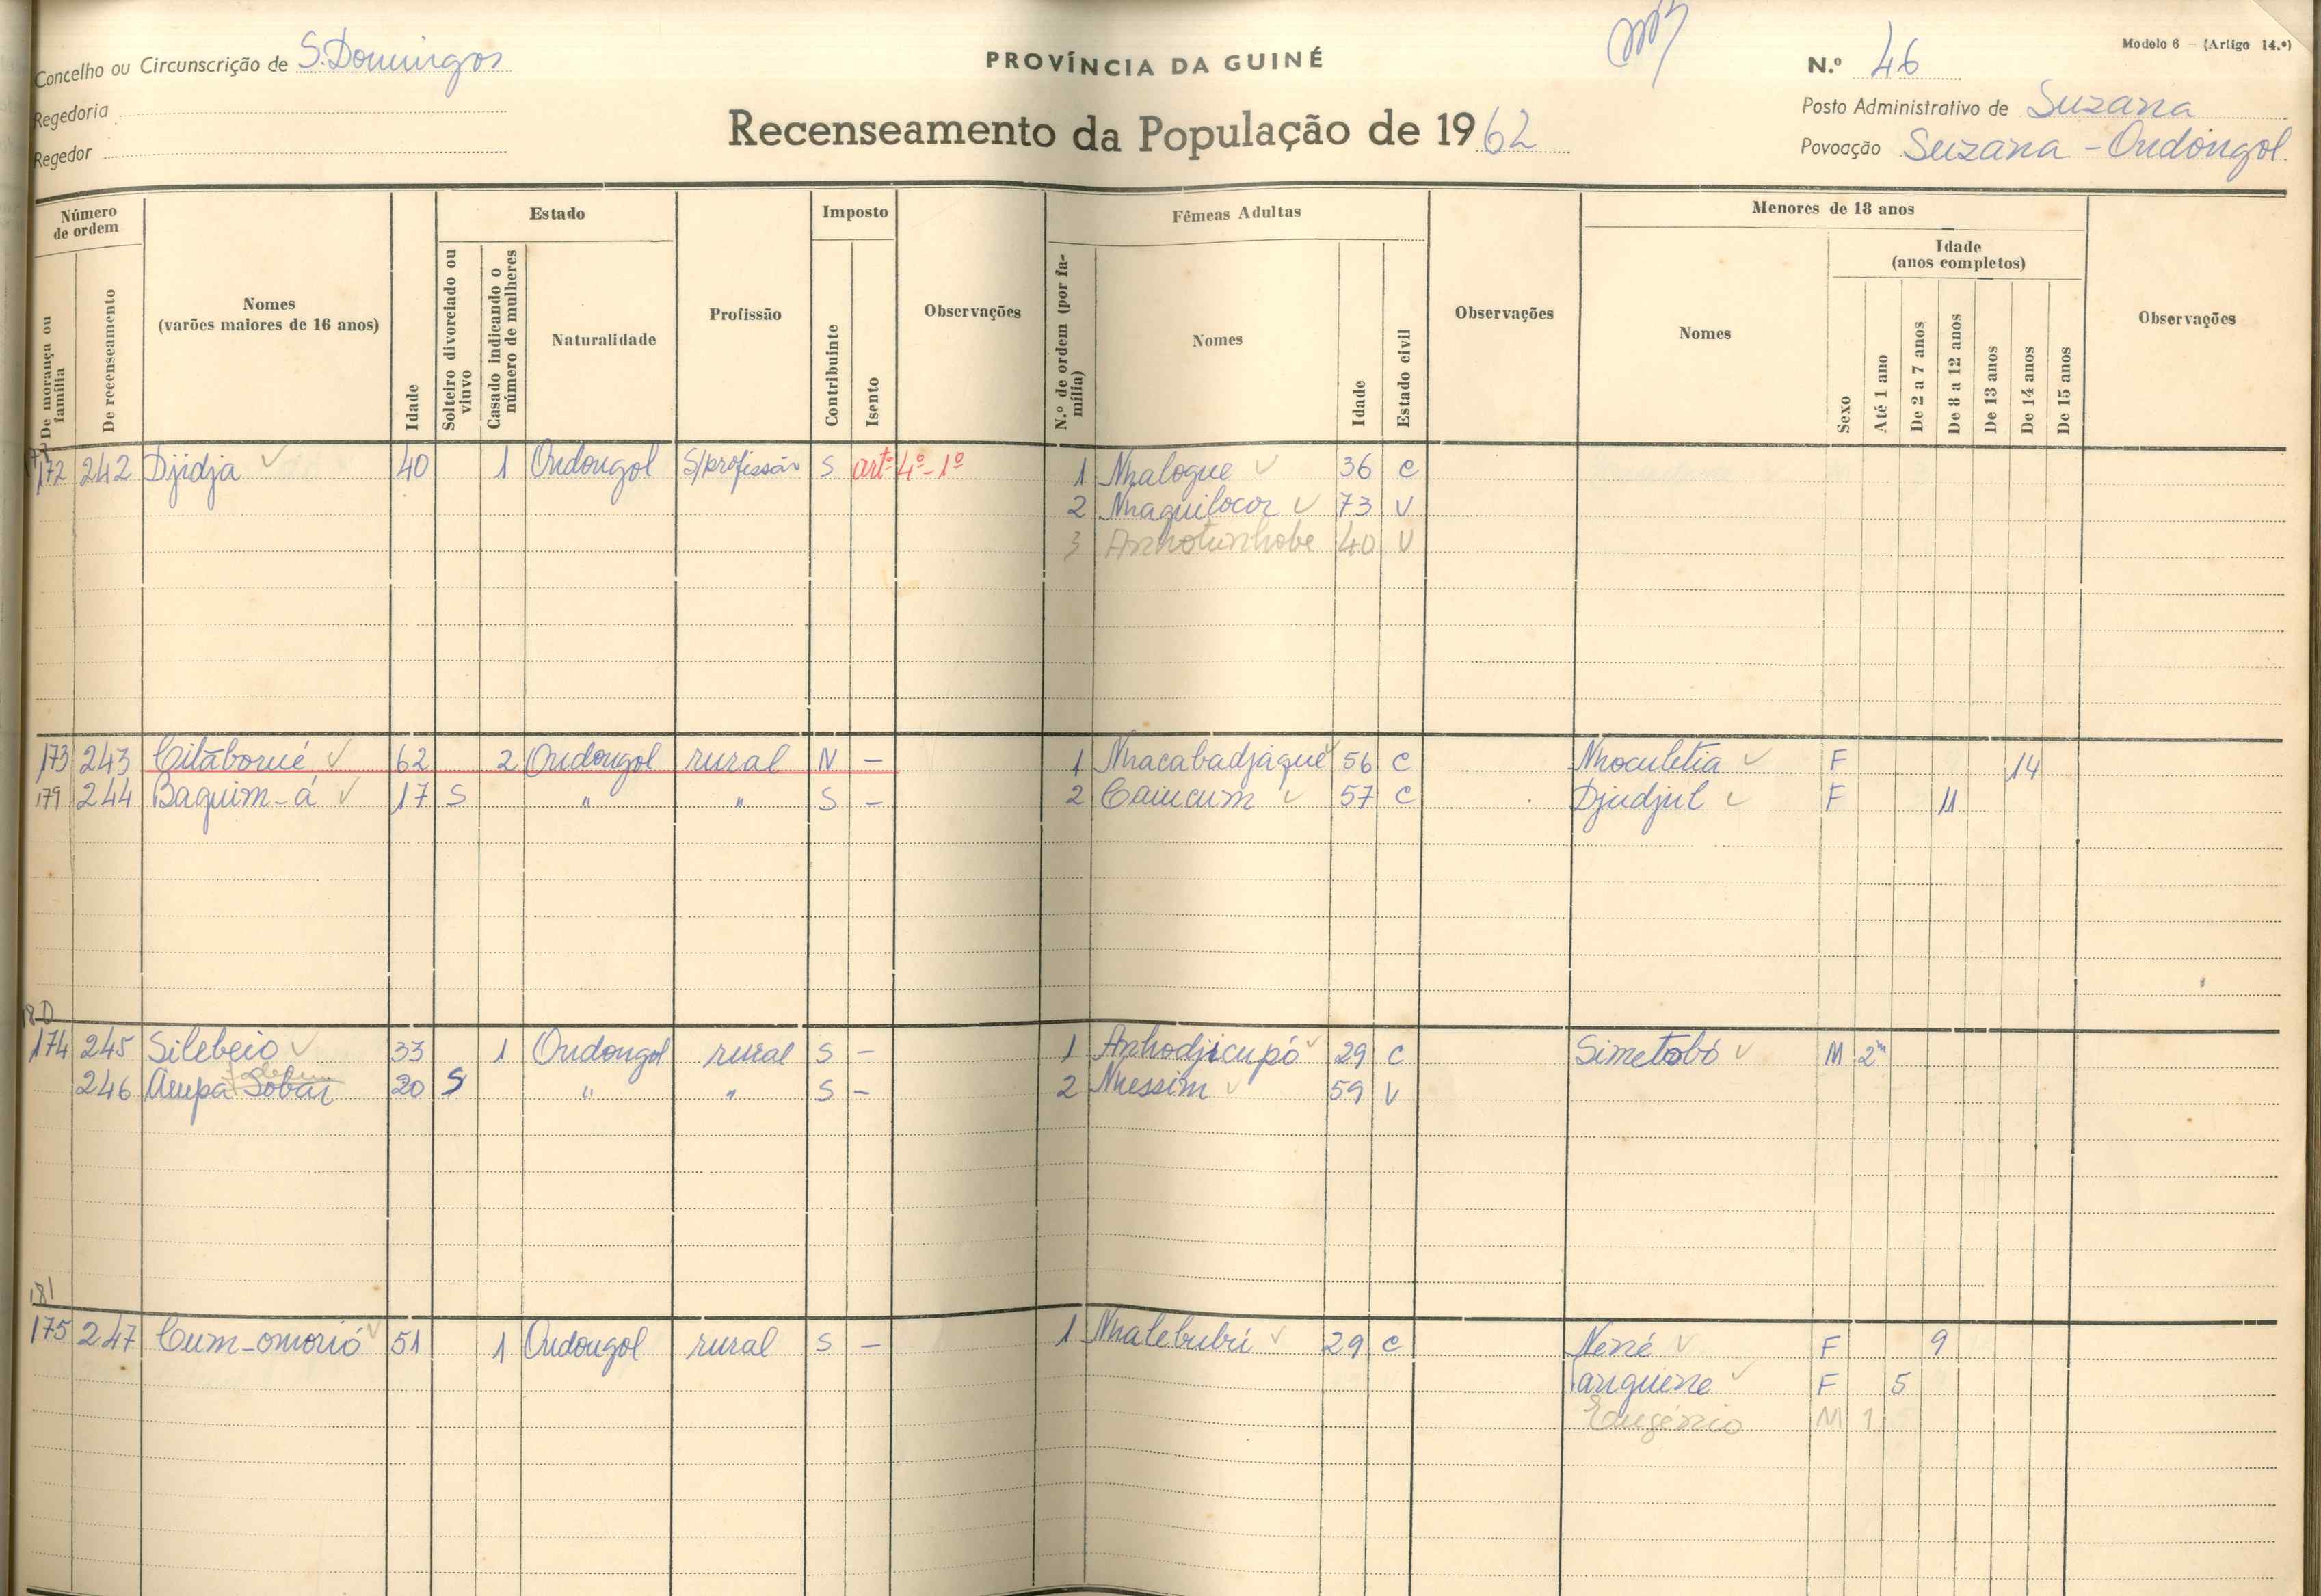 Concelho ou Circunscrição de S. Domingos
Regedoria
Regedor
PROVÍNCIA DA GUINÉ
Recenseamento da População de 1962
Modelo 6 - (Artigo 14.º)
N.º 46
Posto Administrativo de Suzana
Povoação Suzana - Ondongol
Número de ordem
De morança ou família
De recenseamento
Nomes
(varões maiores de 16 anos)
Idade
Estado
Solteiro divorciado ou viuvo
Casado indicando o número de mulheres
Naturalidade
Profissão
Imposto
Contribuinte
Isento
Observações
Fêmeas Adultas
N.º de ordem (por família)
Nomes
Idade
Estado civil
Observações
Menores de 18 anos
Nomes
Sexo
Idade
(anos completos)
Até 1 ano
De 2 a 7 anos
De 8 a 12 anos
De 13 anos
De 14 anos
De 15 anos
Observações
172 242 Djidja 40 1 Ondongol S/profissão S artº 4º-1º 1 Nhalogue 36 C
2 Nhaquilocor 73 V
3 Anhotunhobe 40 V
173 243 Citaborué 62 2 Ondongol rural N - 1 Nhacabadjaque 56 C Nhoculetia F 14
179 244 Baquim-á 17 S " " S - 2 Caiucum 57 C Djudjul F 11
180
174 245 Silebeio 33 1 Ondongol rural S - 1 Anhodjicupó 29 C Simetobó M 2m
246 Aupa Sobai 20 S " " S - 2 Nhessim 59 V
181
175 247 Cum-omorió 51 1 Ondongol rural S - 1 Nhalebubri 29 C Nené F 9
Tanguene F 5
Eougénio M 1